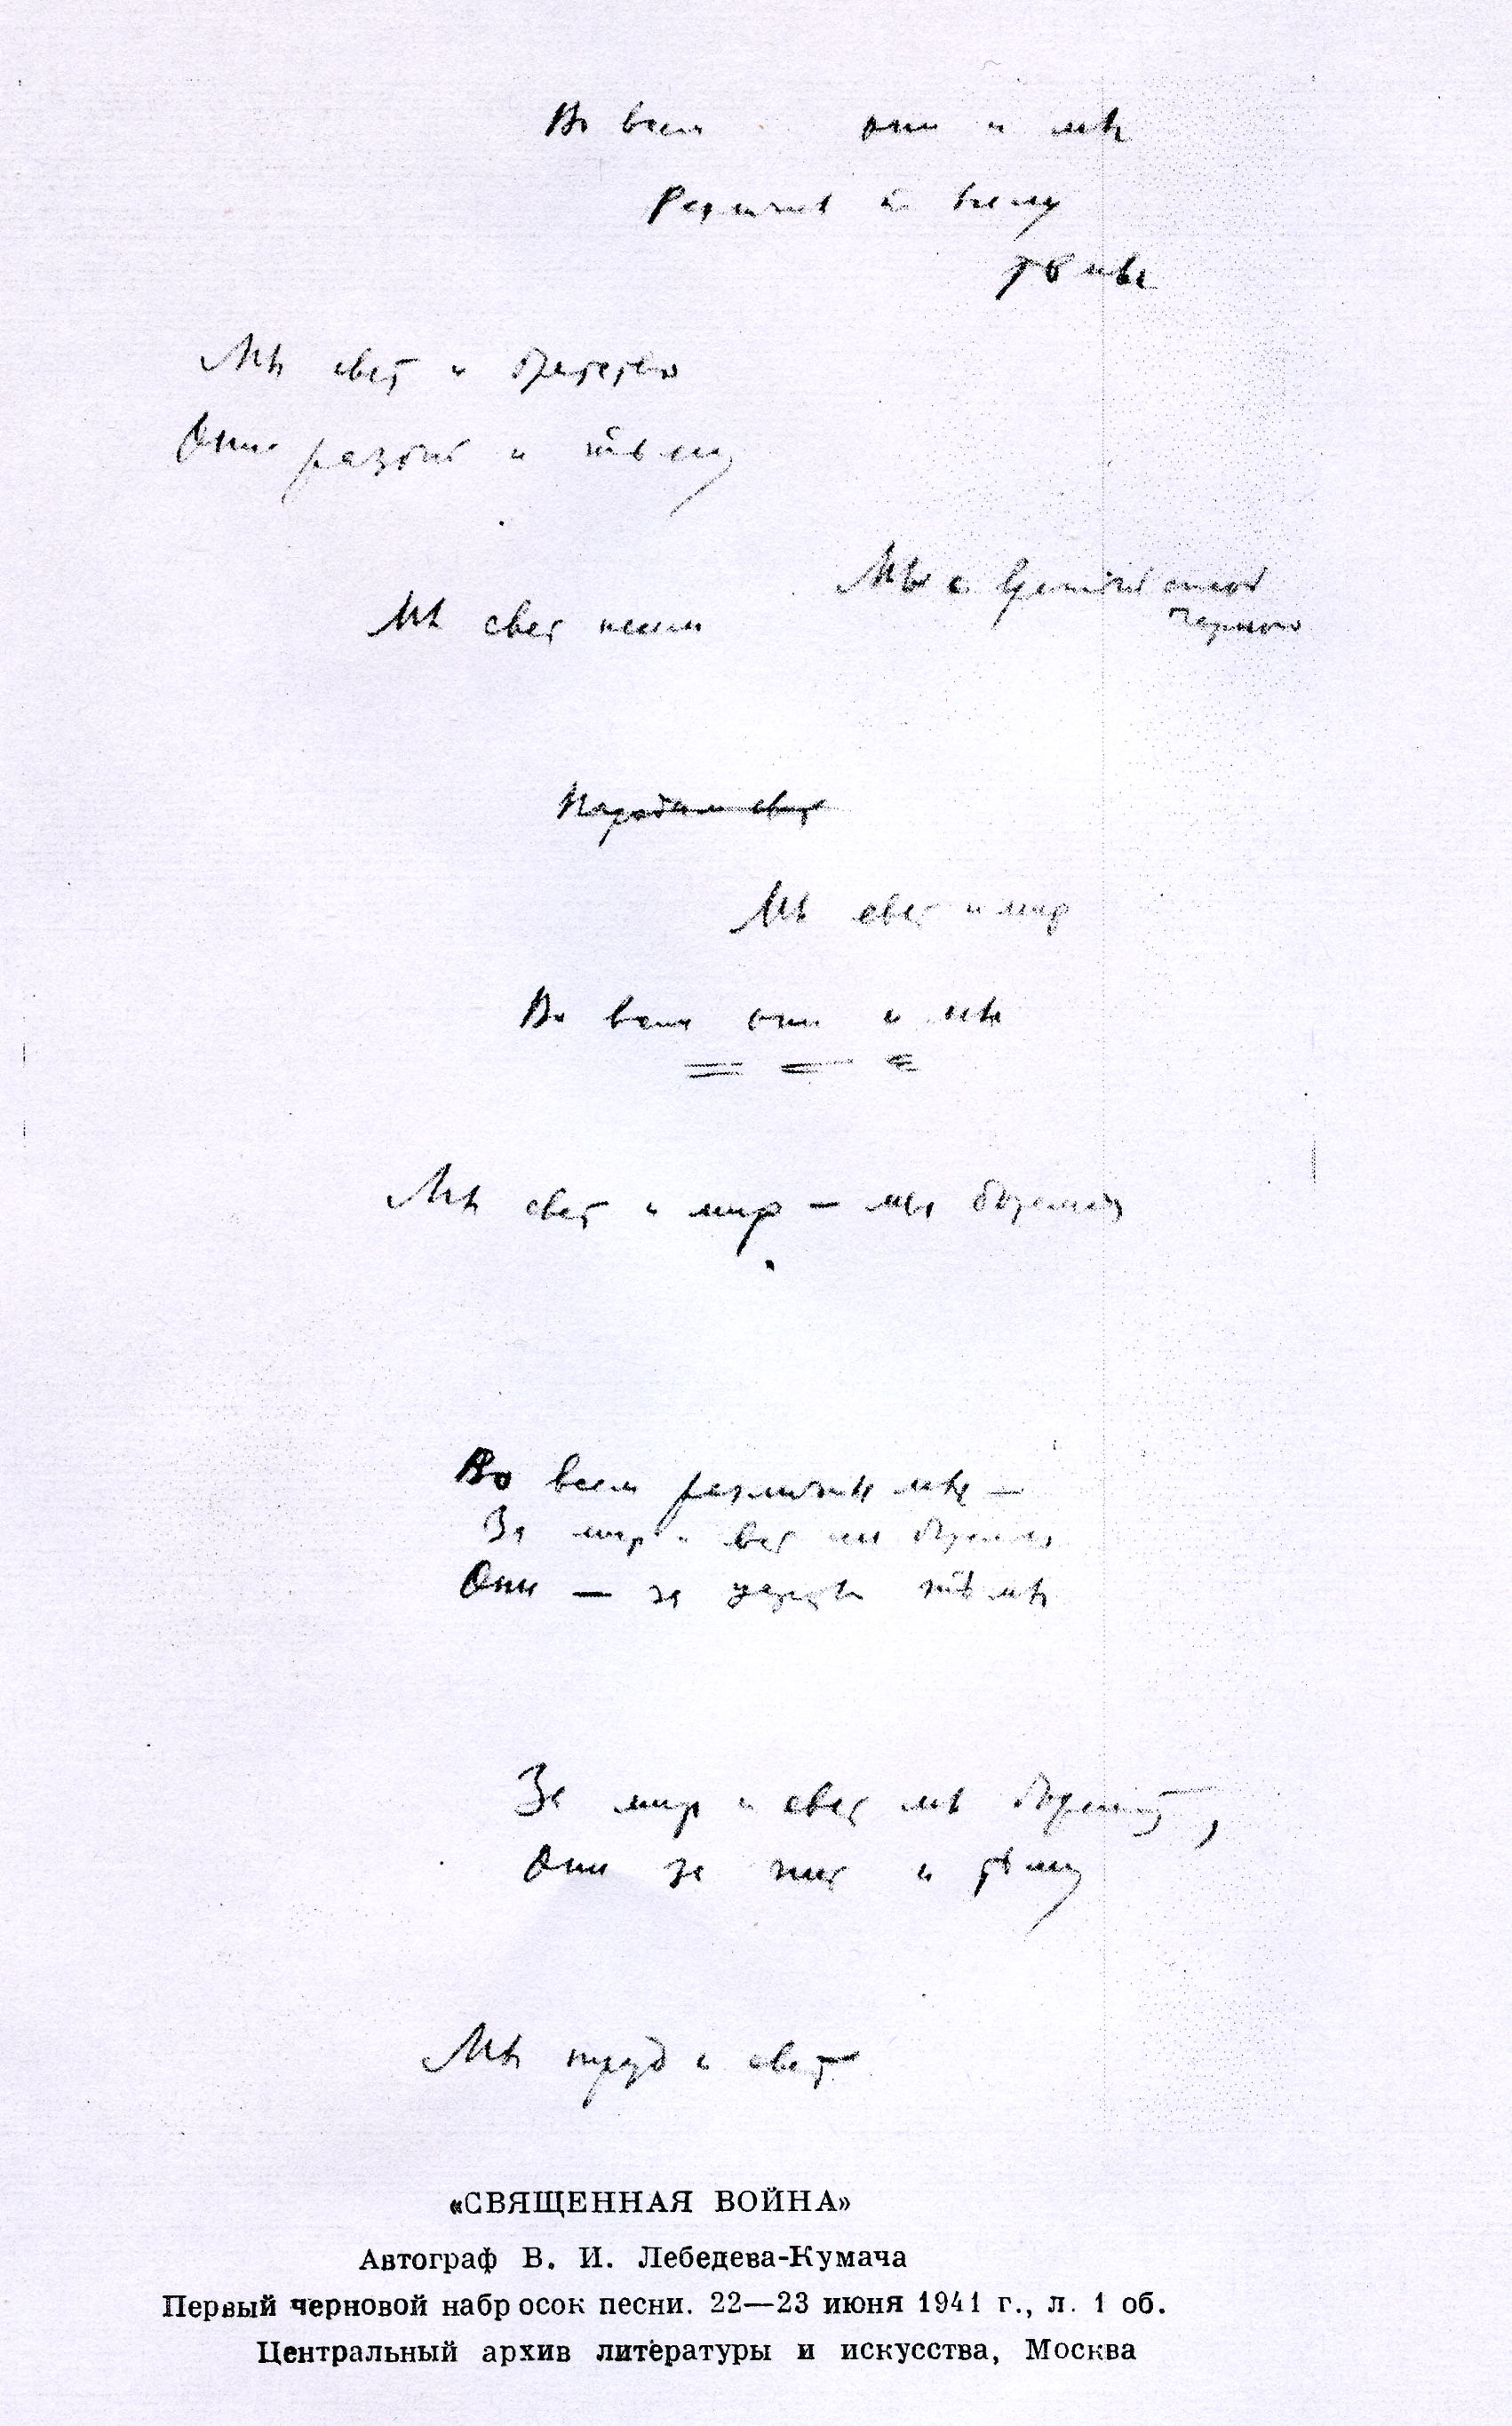 Во всем они и мы
Различны
Мы свет и братство
Они разбой и тьму
Мы с
Мы свет несем
Народам свет
Мы свет и мир
Во всем они и мы
Мы свет и мир — мы
Во всем различны мы —
За мир и свет мы боремся
Они — за царство тьмы
За мир и свет мы боремся,
Они за и тьму
Мы труд и свет
«СВЯЩЕННАЯ ВОЙНА»
Автограф В. И. Лебедева-Кумача
Первый черновой набросок песни. 22—23 июня 1941 г., л. 1 об.
Центральный архив литературы и искусства, Москва